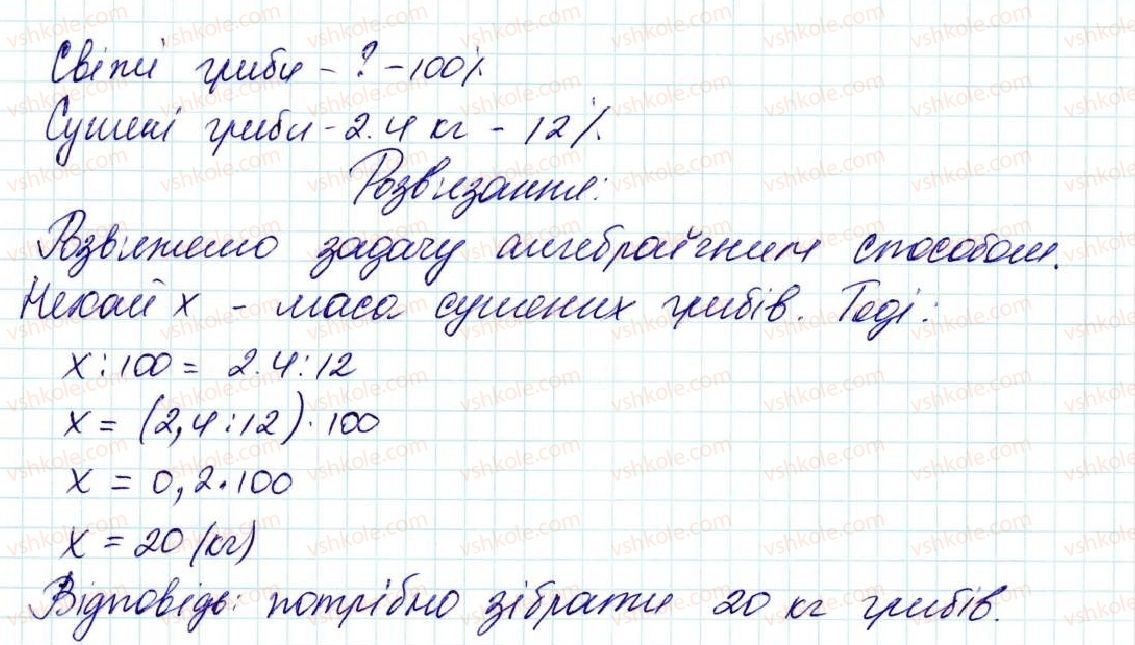 Свіжі гриби - ? - 100%
Сушені гриби - 2.4 кг - 12%
Розв'язання:
Розв'яжемо задачу алгебраїчним способом.
Нехай x - маса сушених грибів. Тоді:
x : 100 = 2.4 : 12
x = (2,4 : 12) · 100
x = 0,2 · 100
x = 20 (кг)
Відповідь: потрібно зібрати 20 кг грибів.